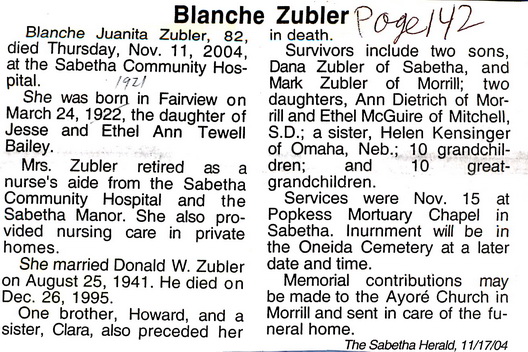 Blanche Zubler
Page 142
Blanche Juanita Zubler, 82,
died Thursday, Nov. 11, 2004,
at the Sabetha Community Hos-
pital.
1921
She was born in Fairview on
March 24, 1922, the daughter of
Jesse and Ethel Ann Tewell
Bailey.
Mrs. Zubler retired as a
nurse's aide from the Sabetha
Community Hospital and the
Sabetha Manor. She also pro-
vided nursing care in private
homes.
She married Donald W. Zubler
on August 25, 1941. He died on
Dec. 26, 1995.
One brother, Howard, and a
sister, Clara, also preceded her
in death.
Survivors include two sons,
Dana Zubler of Sabetha, and
Mark Zubler of Morrill; two
daughters, Ann Dietrich of Mor-
rill and Ethel McGuire of Mitchell,
S.D.; a sister, Helen Kensinger
of Omaha, Neb.; 10 grandchil-
dren; and 10 great-
grandchildren.
Services were Nov. 15 at
Popkess Mortuary Chapel in
Sabetha. Inurnment will be in
the Oneida Cemetery at a later
date and time.
Memorial contributions may
be made to the Ayoré Church in
Morrill and sent in care of the fu-
neral home.
The Sabetha Herald, 11/17/04